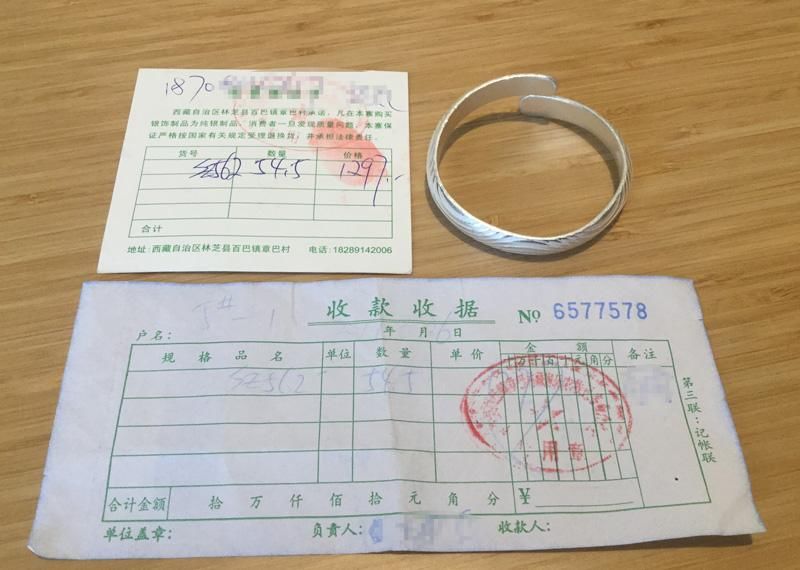 1870
西藏自治区林芝县百巴镇章巴村承诺，凡在本寨购买
银饰制品为纯银制品，消费者一旦发现质量问题，本寨保
证严格按国家有关规定受理退换货，并承担法律责任。
货号 数量 价格
SZ562 54.5 1297.-
合计
地址：西藏自治区林芝县百巴镇章巴村 电话：18289142006
收款收据 № 6577578
户名： 年 月 日
规格品名 单位 数量 单价 金额 备注
十万千百十元角分
SZ562 545
第三联：记帐联
合计金额 拾 万 仟 佰 拾 元 角 分 ¥
单位盖章： 负责人： 收款人：